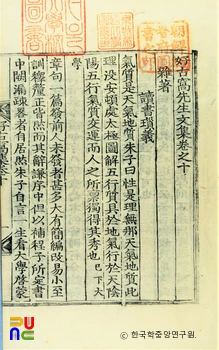 好古窩先生文集卷之十
雜著
讀書瑣義
氣質是天氣地質朱子曰性是理無那天氣地質此
理沒安頓處太極圖解五行質具於地氣行於天陰
陽五行氣質交運而人之所禀獨得其秀也
章句一篇發前人未發者甚多大有簡編改易小至
訓釋釐正皆然而其辭謙序中但以補程子所定書
中闕漏疎義者自居然朱子自言一生看大學啓蒙
한국학중앙연구원